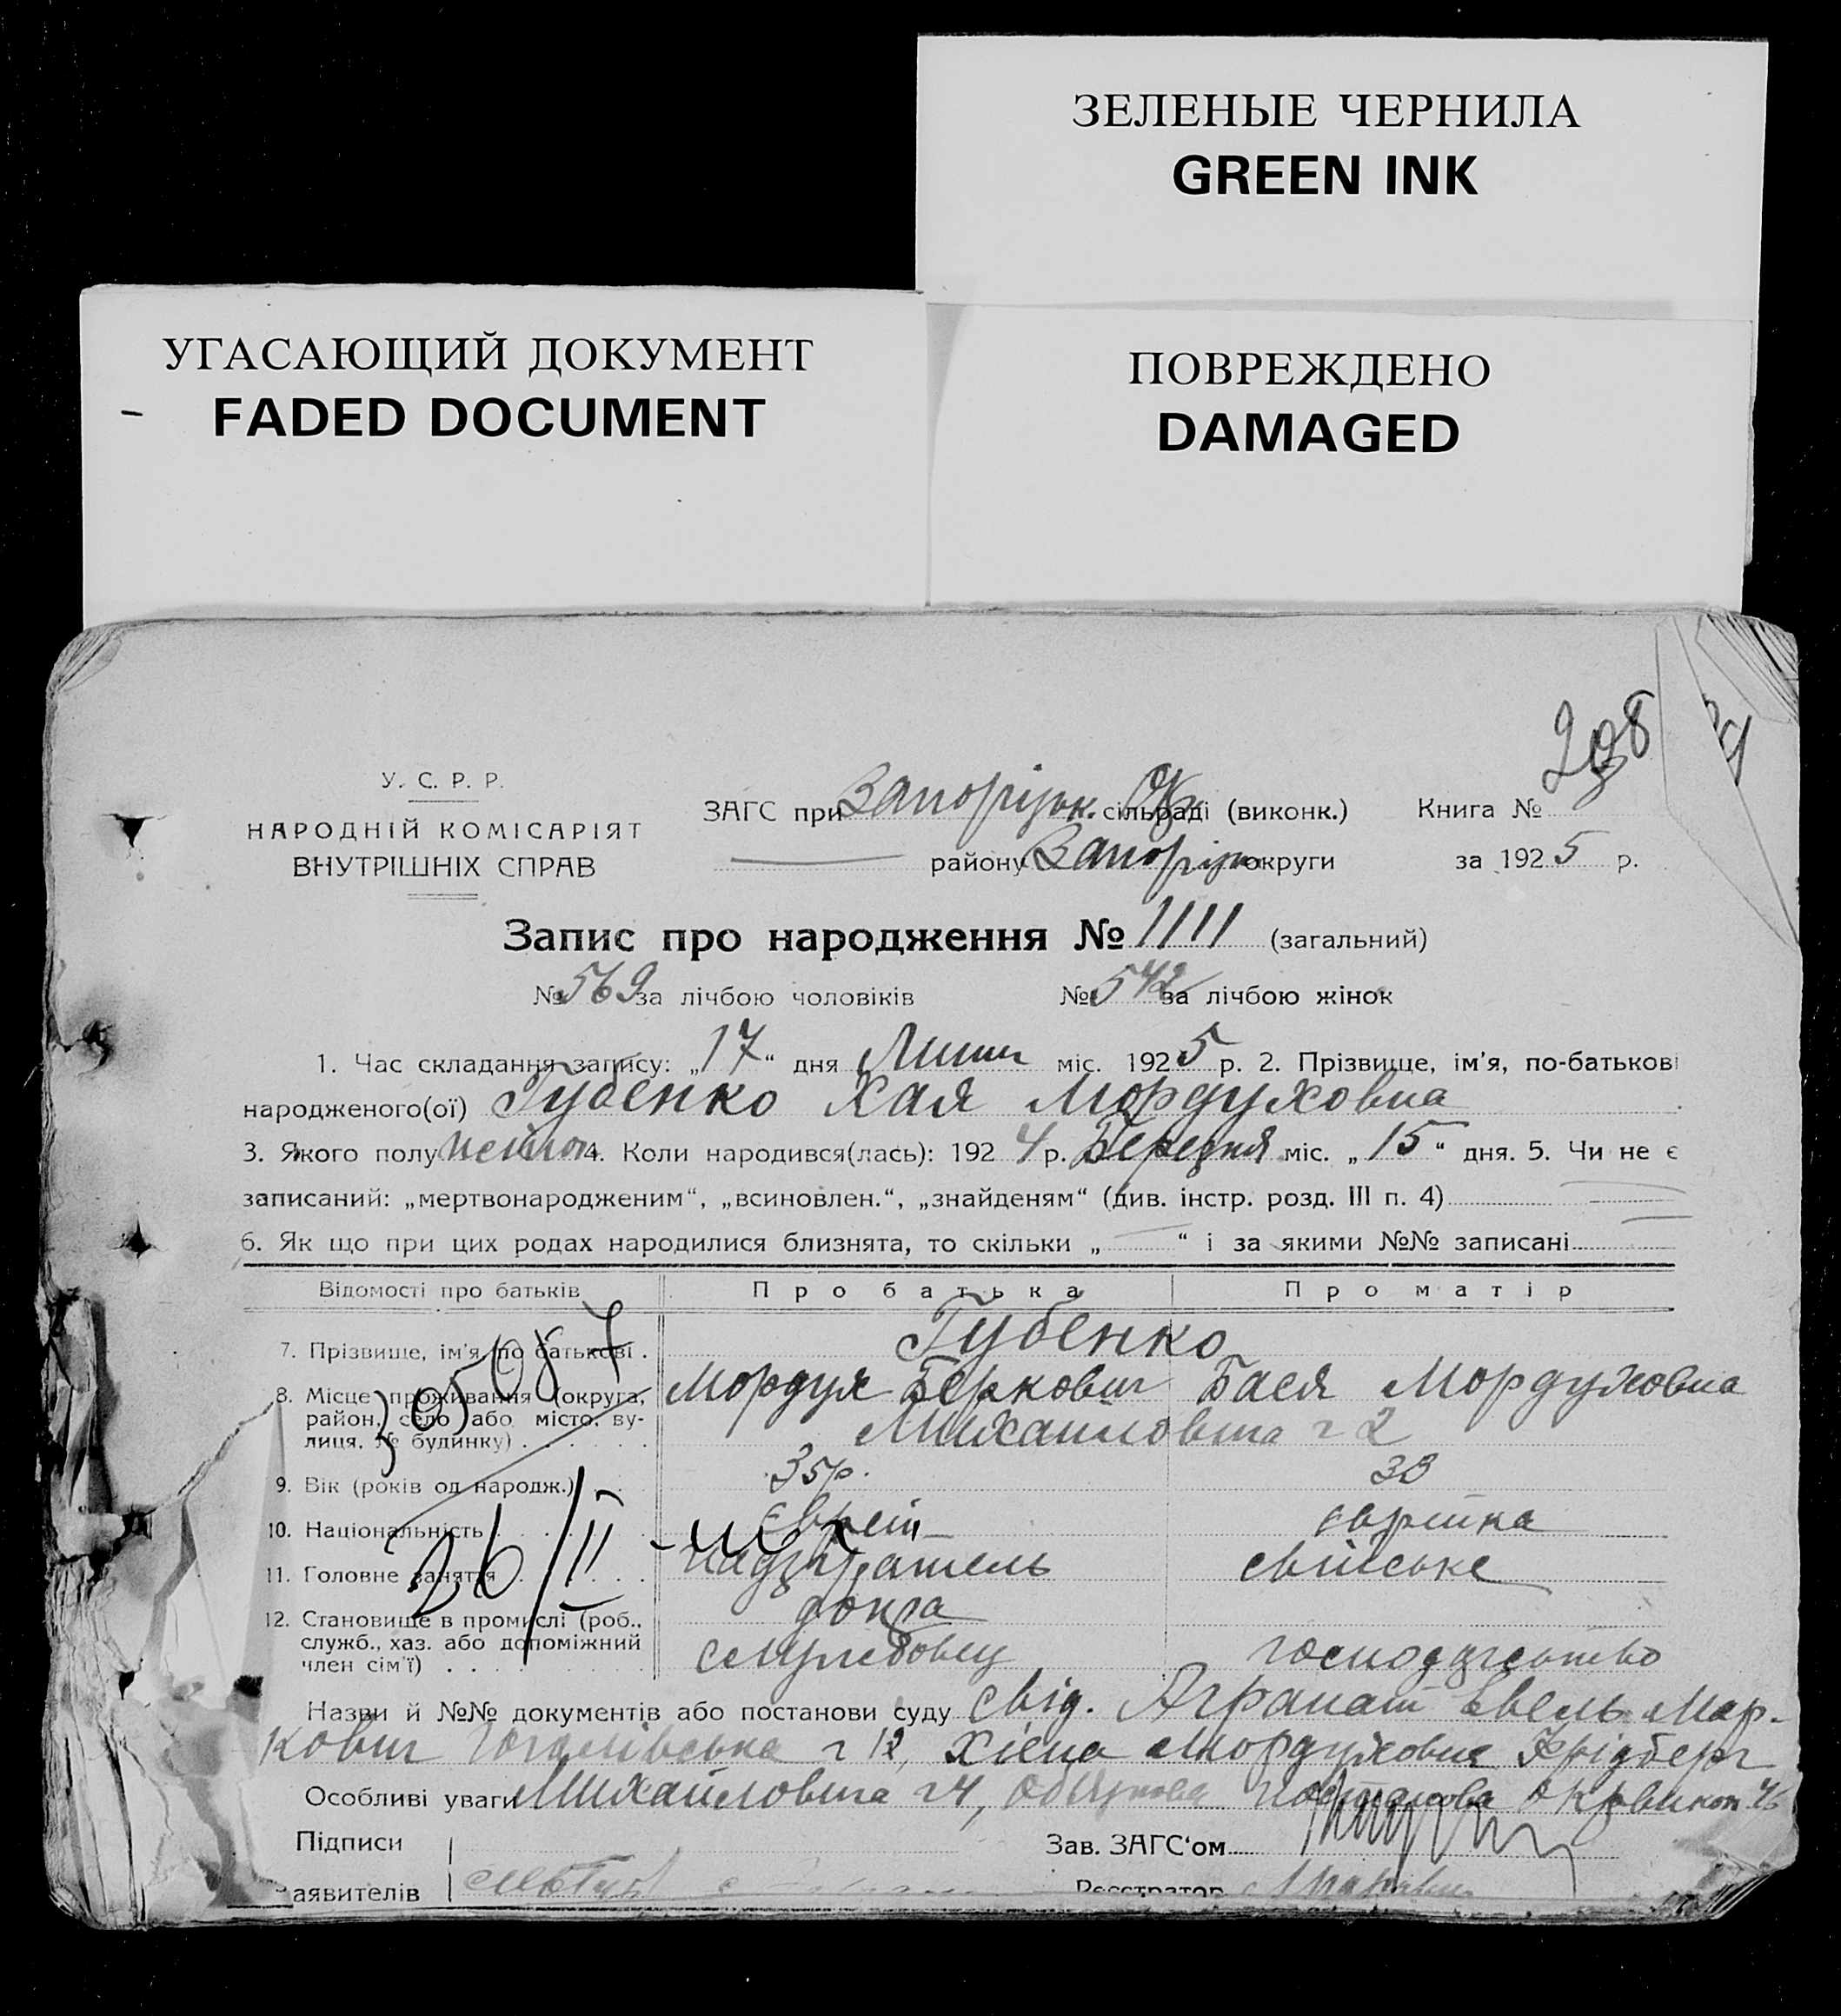 ЗЕЛЕНЫЕ ЧЕРНИЛА
GREEN INK
УГАСАЮЩИЙ ДОКУМЕНТ
FADED DOCUMENT
ПОВРЕЖДЕНО
DAMAGED
У. С. Р. Р.
НАРОДНІЙ КОМІСАРІЯТ
ВНУТРІШНІХ СПРАВ
ЗАГС при Запорізьк. сільраді (виконк.) Книга №
району Запорізьк округи за 1925 р.
Запис про народження № 1111 (загальний)
№ 569 за лічбою чоловіків № 542 за лічбою жінок
1. Час складання запису: „17“ дня Липня міс. 1925 р. 2. Прізвище, ім'я, по-батькові
народженого(ої) Губенко Хая Мордуховна
3. Якого полу 4. Коли народився(лась): 1924 р. Березня міс. „15“ дня. 5. Чи не є
записаний: „мертвонародженим“, „всиновлен.“, „знайденям“ (див. інстр. розд. III п. 4)
6. Як що при цих родах народилися близнята, то скільки „ “ і за якими №№ записані
Відомості про батьків Про батька Про матір
7. Прізвище, ім'я, по батькові . Губенко
Мордух Беркович Бася Мордуховна
8. Місце проживання (округа, район, село або місто, ву-
лиця, № будинку) . Михайловська 2
9. Вік (років од народж.) 35р. 33
10. Національність Єврей Єврейка
11. Головне заняття надзиратель свійське
12. Становище в промислі (роб.,
служб., хаз. або допоміжний
член сім'ї) допра
службовец господарство
26/II
Назви й №№ документів або постанови суду свід. Агранат Евель Мар-
кович 12, Хіена Мордуховна Фрідберг
Особливі уваги Михайловська 4, постанова Окрвикон
Підписи Зав. ЗАГС'ом
аявителів Реєстратор